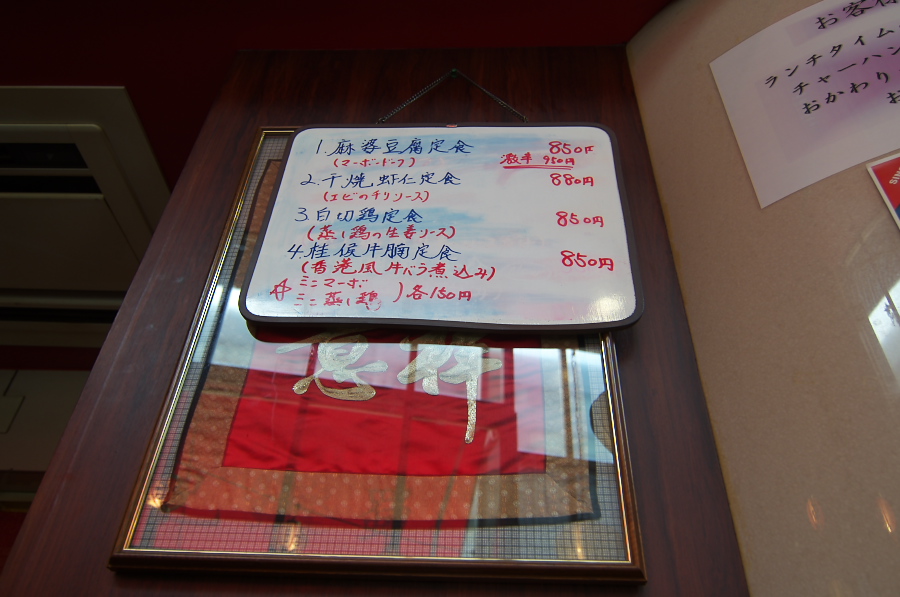 1. 麻婆豆腐定食 850円
(マーボードーフ) 激辛 950円
2. 干焼虾仁定食 880円
(エビのチリソース)
3. 白切鶏定食 850円
(蒸し鶏の生姜ソース)
4. 桂候牛腩定食 850円
(香港風牛バラ煮込み)
☆ ミニマーボ
ミニ蒸し鶏 ) 各150円
お客様
ランチタイム
チャーハン
おかわり
お